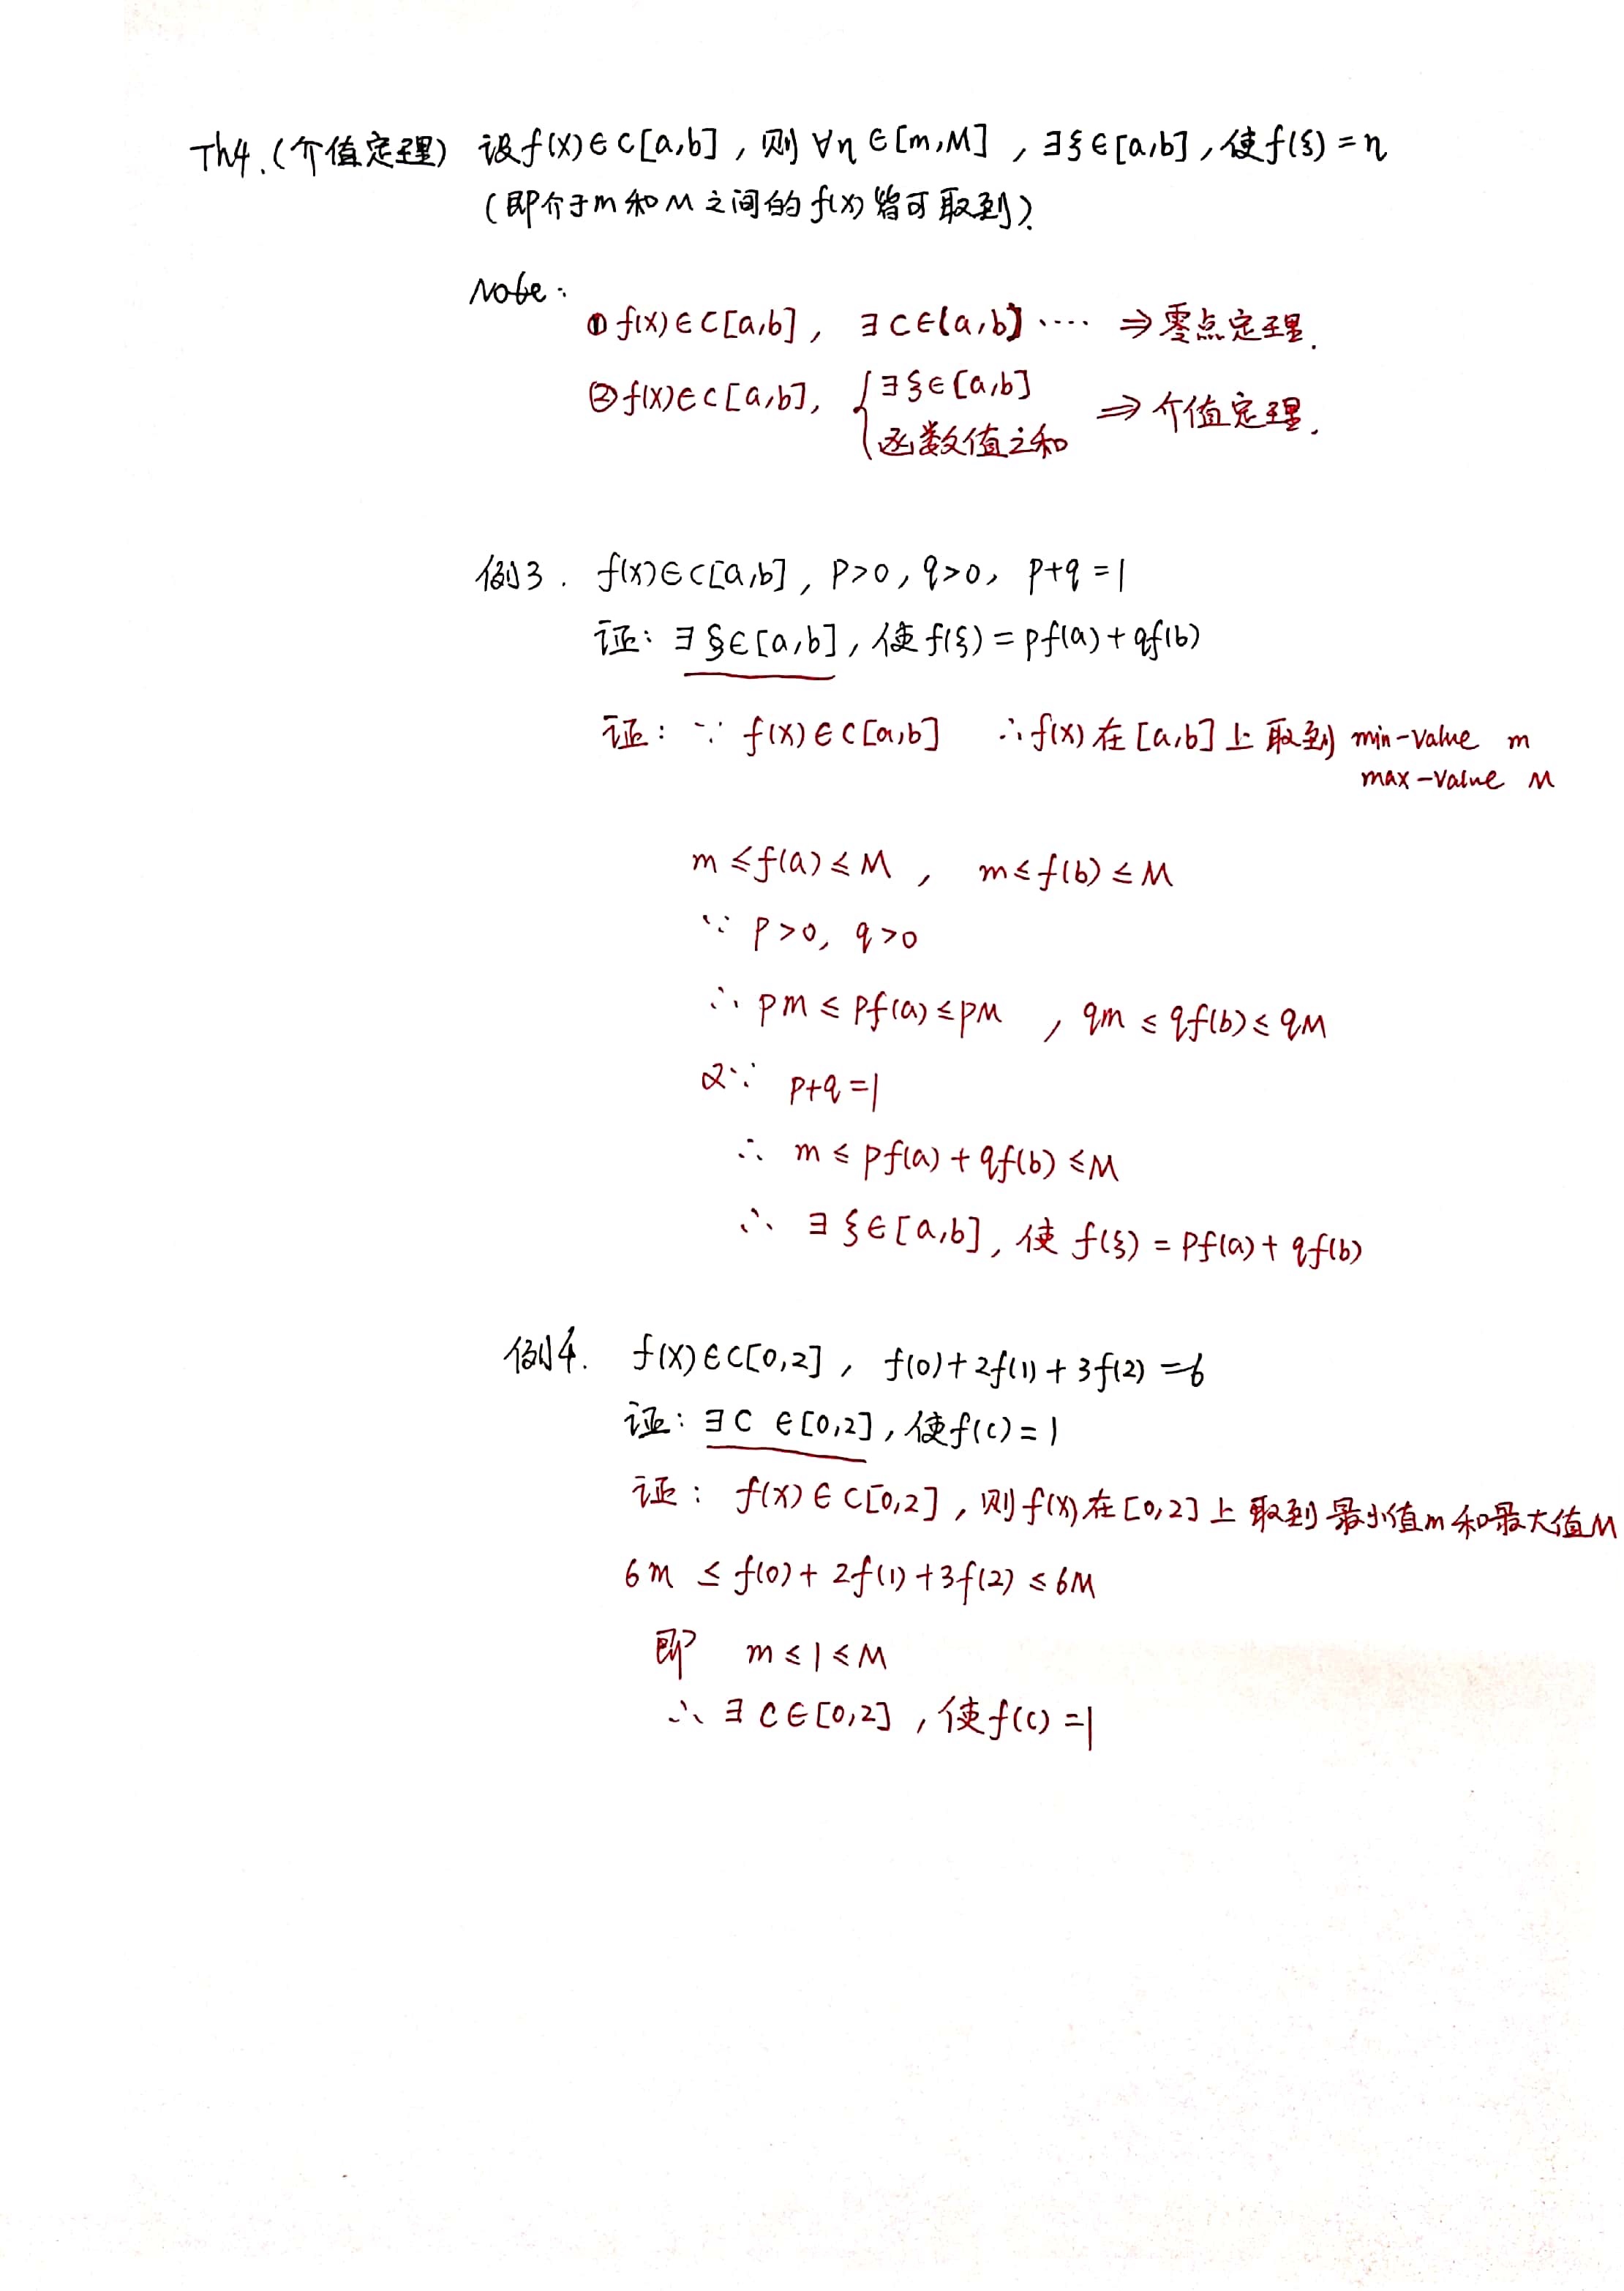 Th4.(介值定理) 设f(x)∈C[a,b],则∀η∈[m,M],∃ξ∈[a,b],使f(ξ)=η
(即介于m和M之间的f(x)皆可取到).
Note:
① f(x)∈C[a,b], ∃C∈(a,b) ···· ⇒零点定理.
②f(x)∈C[a,b], { ∃ξ∈[a,b]
函数值之和 ⇒ 介值定理.
例3. f(x)∈C[a,b], p>0, q>0, p+q=1
证: ∃ξ∈[a,b],使f(ξ)=pf(a)+qf(b)
证: ∵ f(x)∈C[a,b] ∴f(x)在[a,b]上取到 min-value m
max-value M
m≤f(a)≤M, m≤f(b)≤M
∵ p>0, q>0
∴ pm≤pf(a)≤pM, qm≤qf(b)≤qM
又∵ p+q=1
∴ m≤pf(a)+qf(b)≤M
∴ ∃ξ∈[a,b],使f(ξ)=pf(a)+qf(b)
例4. f(x)∈C[0,2], f(0)+2f(1)+3f(2)=6
证: ∃C∈[0,2],使f(c)=1
证: f(x)∈C[0,2],则f(x)在[0,2]上取到最小值m和最大值M
6m≤f(0)+2f(1)+3f(2)≤6M
即 m≤1≤M
∴ ∃C∈[0,2],使f(c)=1